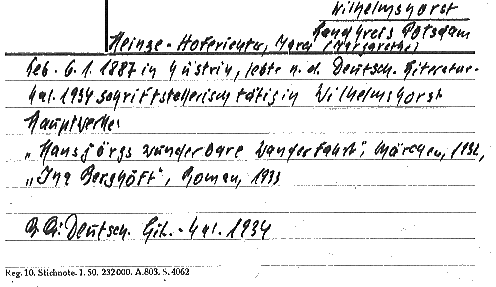 Wilhelmshorst
Landkreis Potsdam
Heinze - Hoferichter, Mara (Margarethe)
Geb. 6.1.1887 in Güstrin, lebte n. d. Deutsch. Literatur-
Kal. 1934 schriftstellerisch tätig in Wilhelmshorst
Hauptwerke:
„Hansjörgs wunderbare Wanderfahrt", Märchen, 1932,
„Ina Bershöft", Roman, 1933
Deutsch. Lit. - Kal. 1934
Reg. 10. Stichnote. 1. 50. 232000. A.803. S. 4062